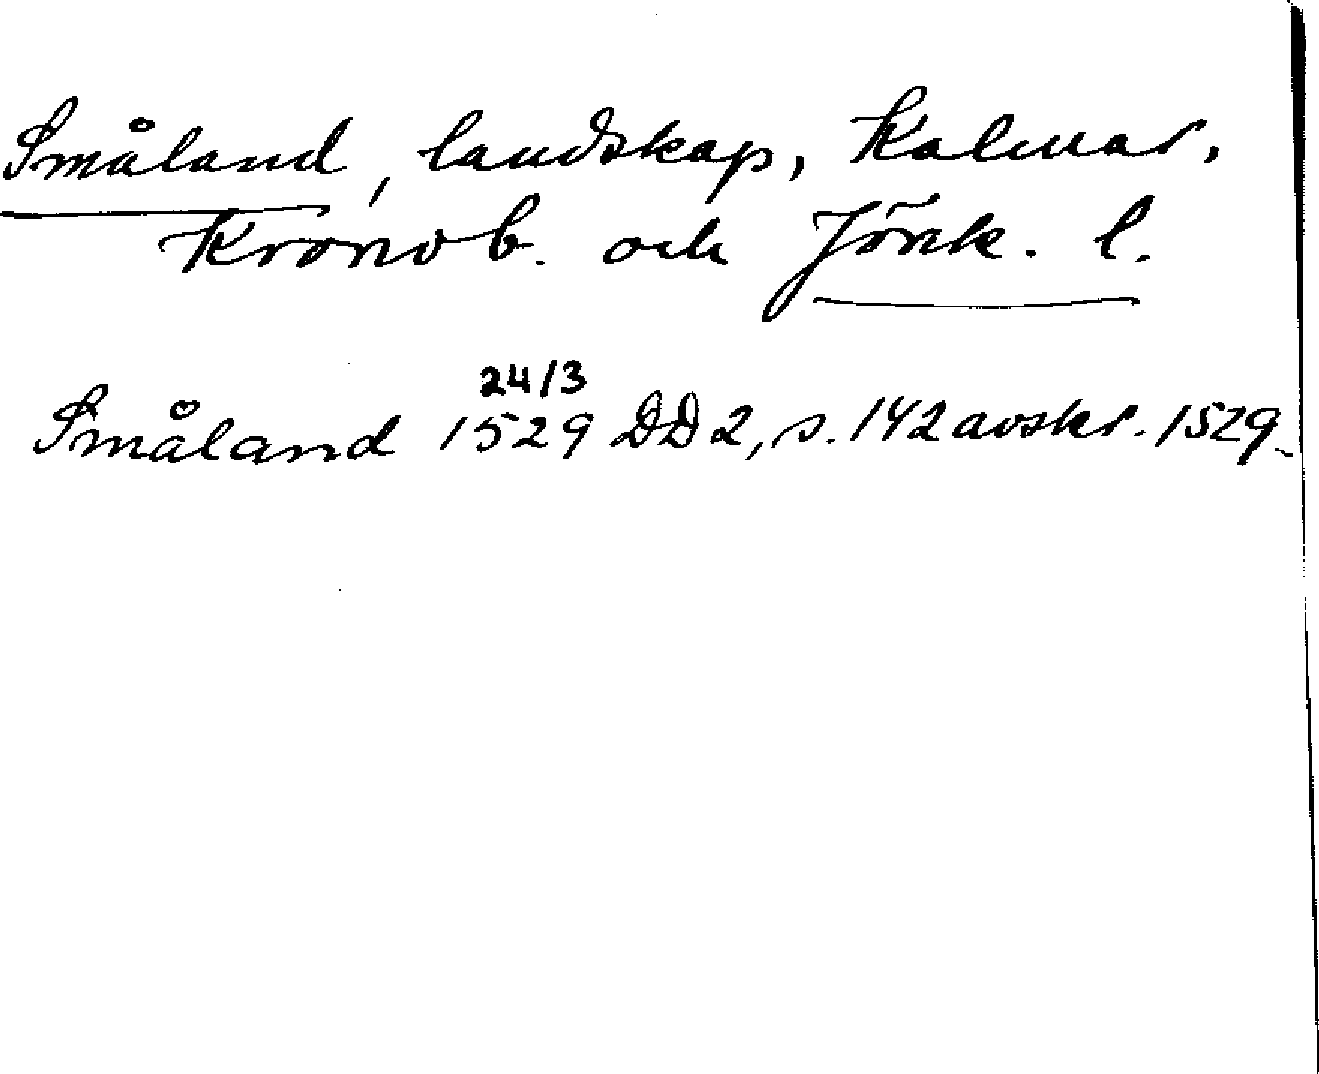 Småland, landskap, Kalmar,
Kronob. och Jönk. l.
24/3
Småland 1529 DD2, s. 142 avskr. 1529.